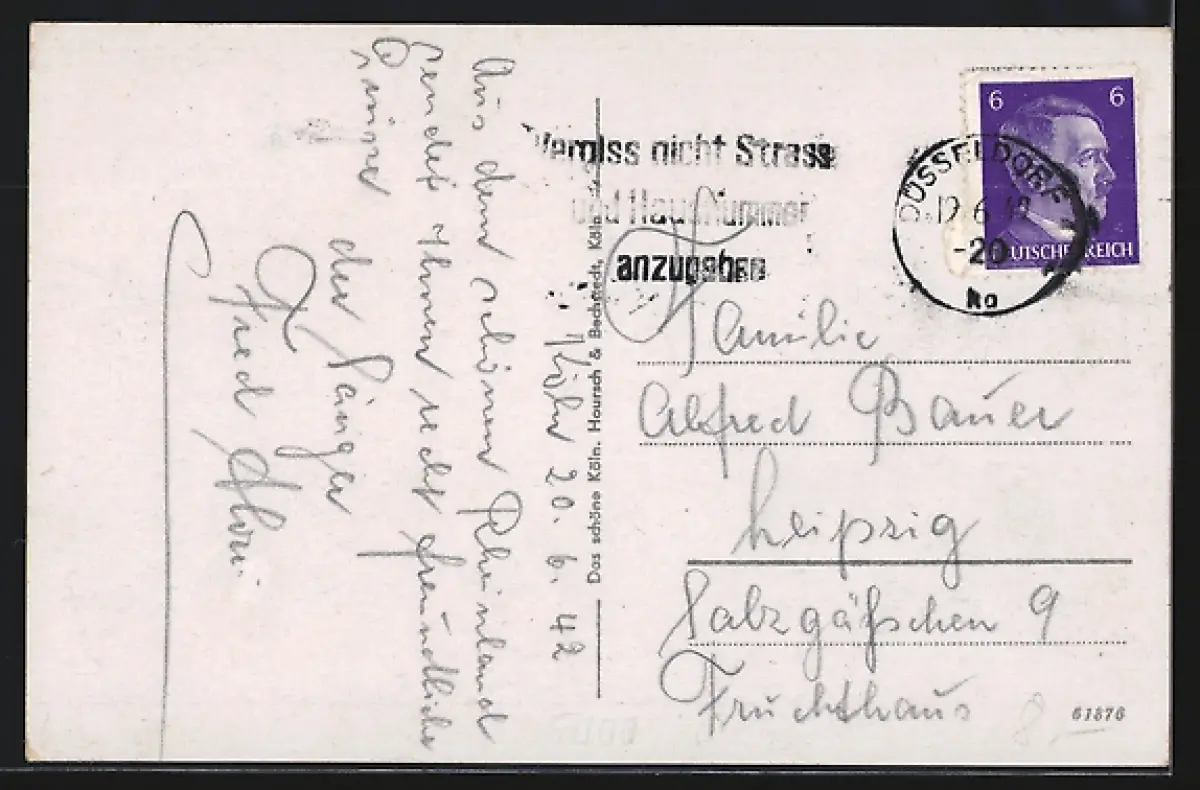 Köln 20. 6. 42
Aus dem schönen Rheinland
sendet Ihnen recht freundliche
Grüsse
der Sänger
Fred
Das schöne Köln. Hoursch & Bechstedt, Köln
Vergiss nicht Strasse
und Hausnummer
anzugeben
6 6
DEUTSCHES REICH
DÜSSELDORF
-20
Familie
Alfred Bauer
Leipzig
Salzgäßchen 9
Fruchthaus
61876